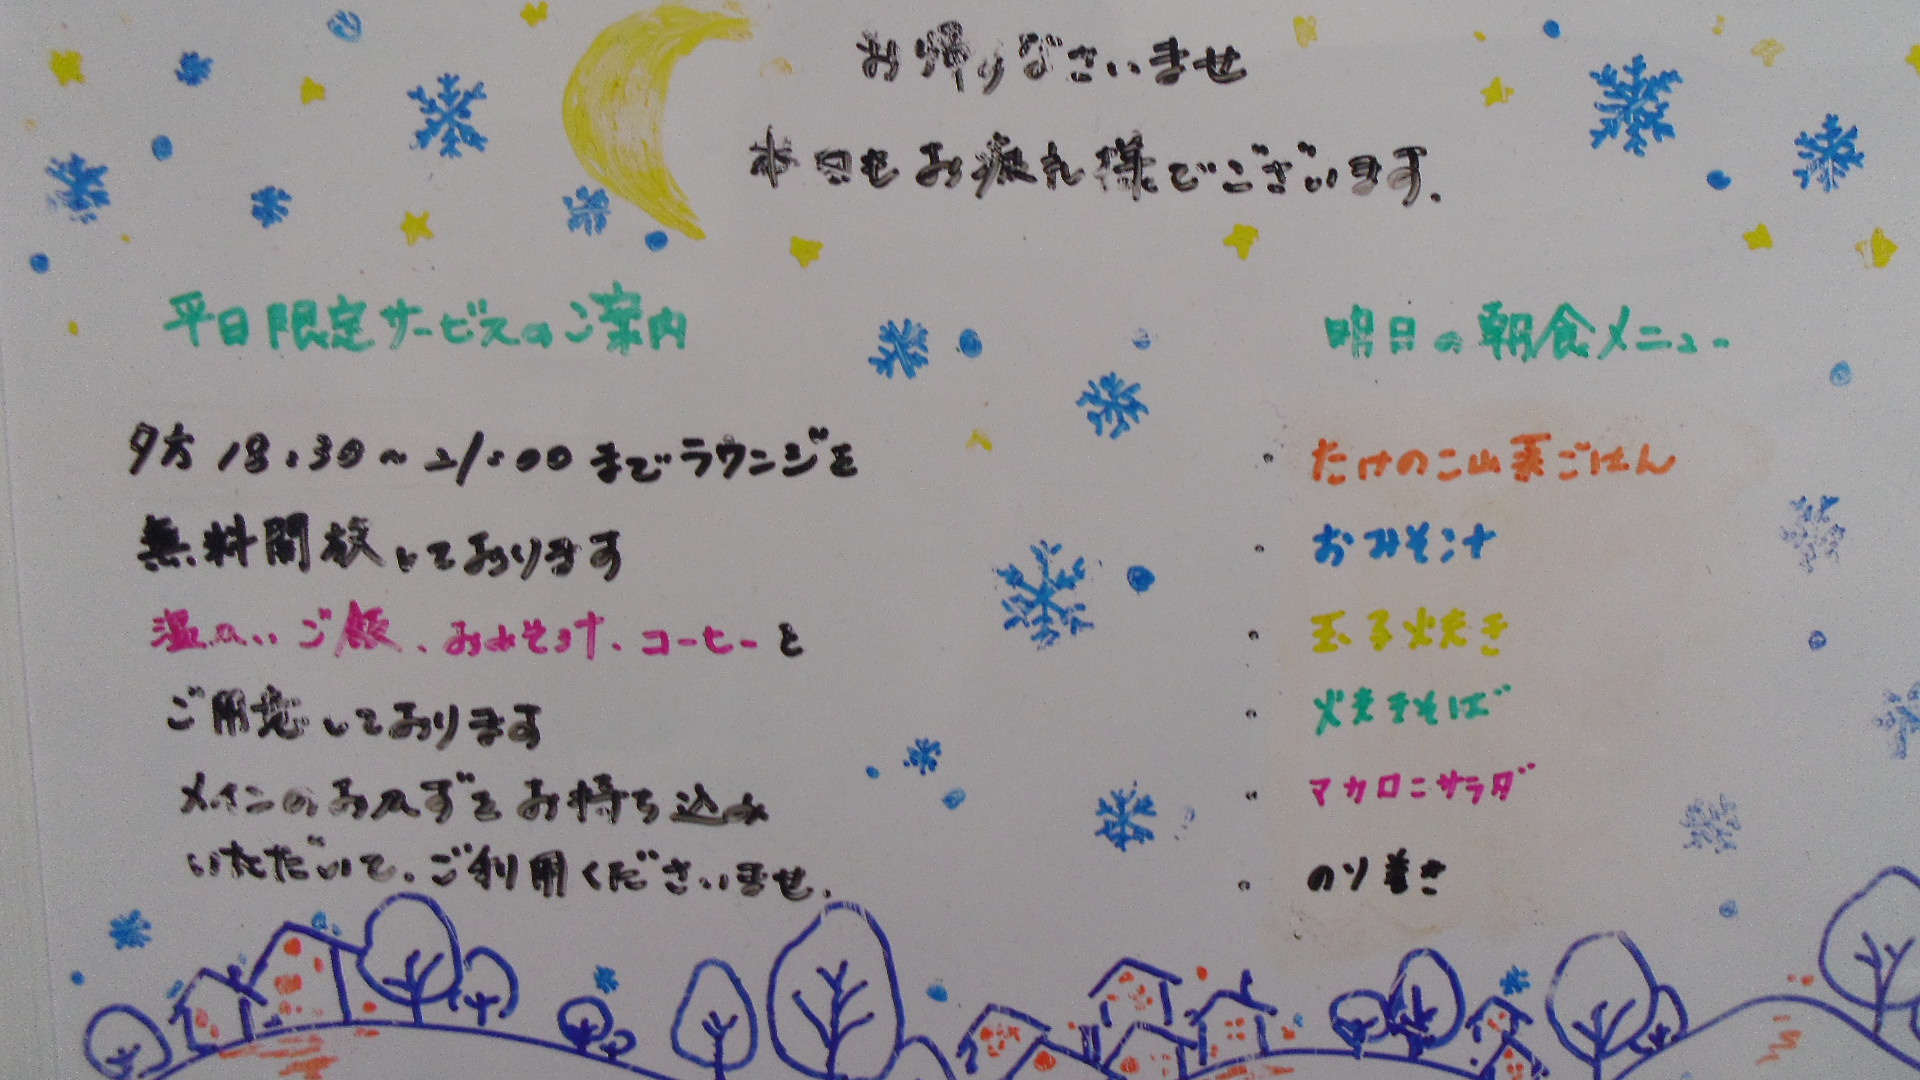 お帰りなさいませ
本日もお疲れ様でございます.
平日限定サービスのご案内
夕方 18:30～21:00 までラウンジを
無料開放しております
温かいご飯、おみそ汁、コーヒーを
ご用意しております
メインのおかずをお持ち込み
いただいて、ご利用くださいませ.
明日の朝食メニュー
・たけのこ山菜ごはん
・おみそ汁
・玉子焼き
・焼きそば
・マカロニサラダ
・のり巻き